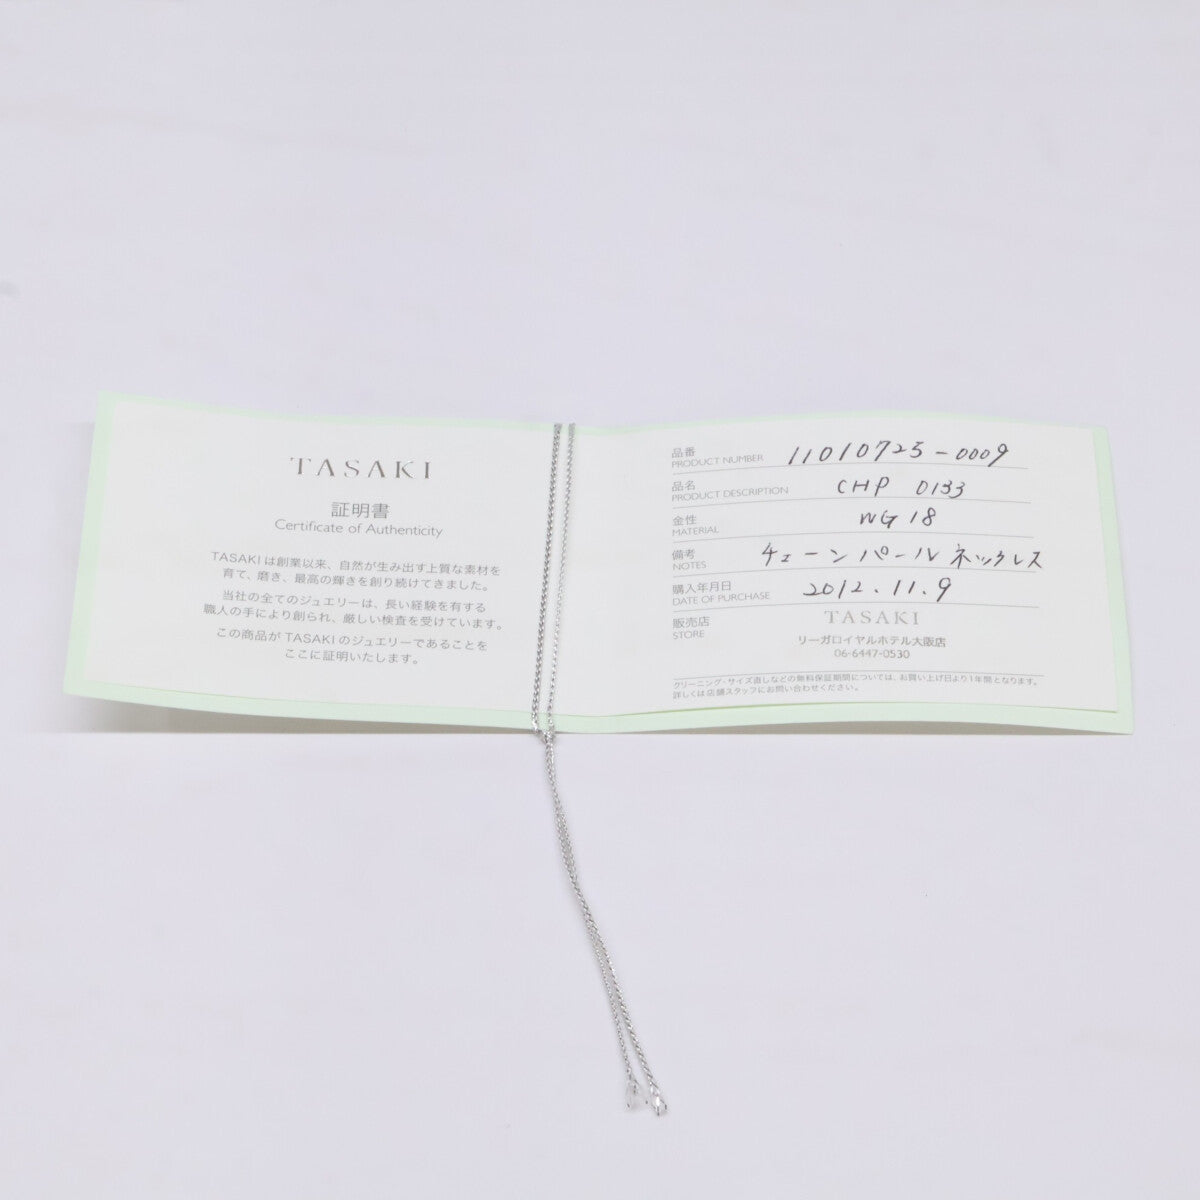 TASAKI
証明書
Certificate of Authenticity
TASAKIは創業以来、自然が生み出す上質な素材を
育て、磨き、最高の輝きを創り続けてきました。
当社の全てのジュエリーは、長い経験を有する
職人の手により創られ、厳しい検査を受けています。
この商品がTASAKIのジュエリーであることを
ここに証明いたします。
品番
PRODUCT NUMBER 11010725-0009
品名
PRODUCT DESCRIPTION CHP 0133
金性
MATERIAL WG18
備考
NOTES チェーンパールネックレス
購入年月日
DATE OF PURCHASE 2012.11.9
販売店
STORE
TASAKI
リーガロイヤルホテル大阪店
06-6447-0530
クリーニング・サイズ直しなどの無料保証期間については、お買い上げ日より1年間となります。
詳しくは店舗スタッフにお問い合わせください。